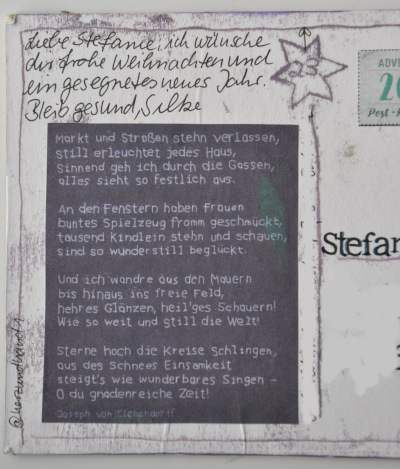 Liebe Stefanie, ich wünsche
dir frohe Weihnachten und
ein gesegnetes neues Jahr.
Bleib gesund, Silke
23
ADVE
20
Post-
Markt und Straßen stehn verlassen,
still erleuchtet jedes Haus,
sinnend geh ich durch die Gassen,
alles sieht so festlich aus.
An den Fenstern haben Frauen
buntes Spielzeug fromm geschmückt,
tausend Kindlein stehn und schauen,
sind so wunderstill beglückt.
Und ich wandre aus den Mauern
bis hinaus ins freie Feld,
hehres Glänzen, heil'ges Schauern!
Wie so weit und still die Welt!
Sterne hoch die Kreise Schlingen,
aus des Schnees Einsamkeit
steigt's wie wunderbares Singen -
O du gnadenreiche Zeit!
Joseph von Eichendorff
Stefan